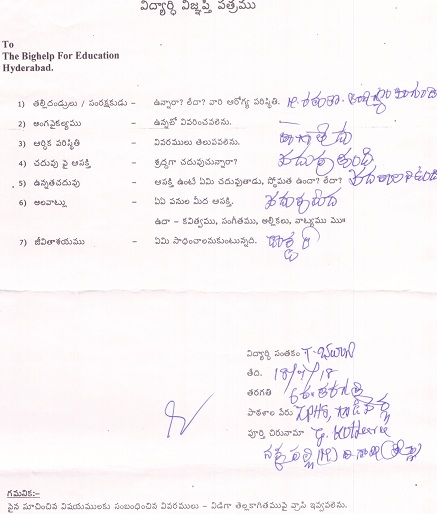 విద్యార్ధి విజ్ఞప్తి పత్రము
To
The Bighelp For Education
Hyderabad.
1) తల్లిదండ్రులు / సంరక్షకుడు – ఉన్నారా? లేదా? వారి ఆరోగ్య పరిస్థితి.
2) అంగవైకల్యము – ఉన్నచో వివరించవలెను.
3) ఆర్ధిక పరిస్థితి – వివరములు తెలుపవలెను. బాగాలేదు
4) చదువు పై ఆసక్తి – శ్రద్ధగా చదువుచున్నారా? చదువుతుంది
5) ఉన్నతచదువు – ఆసక్తి ఉంటే ఏమి చదువుతాడు, స్తోమత ఉందా? లేదా?
6) అలవాట్లు – ఏఏ పనుల మీద ఆసక్తి. చదువుమీద
ఉదా – కవిత్వము, సంగీతము, అల్లికలు, నాట్యము మొ॥
7) జీవితాశయము – ఏమి సాధించాలనుకుంటున్నది. డాక్టర్
విద్యార్ధి సంతకం T.
తేది. 18/9/18
తరగతి
పాఠశాల పేరు ZPHS,
పూర్తి చిరునామా G.
గమనిక:-
పైన సూచించిన విషయములకు సంబంధించిన వివరములు – విడిగా తెల్లకాగితముపై వ్రాసి ఇవ్వవలెను.